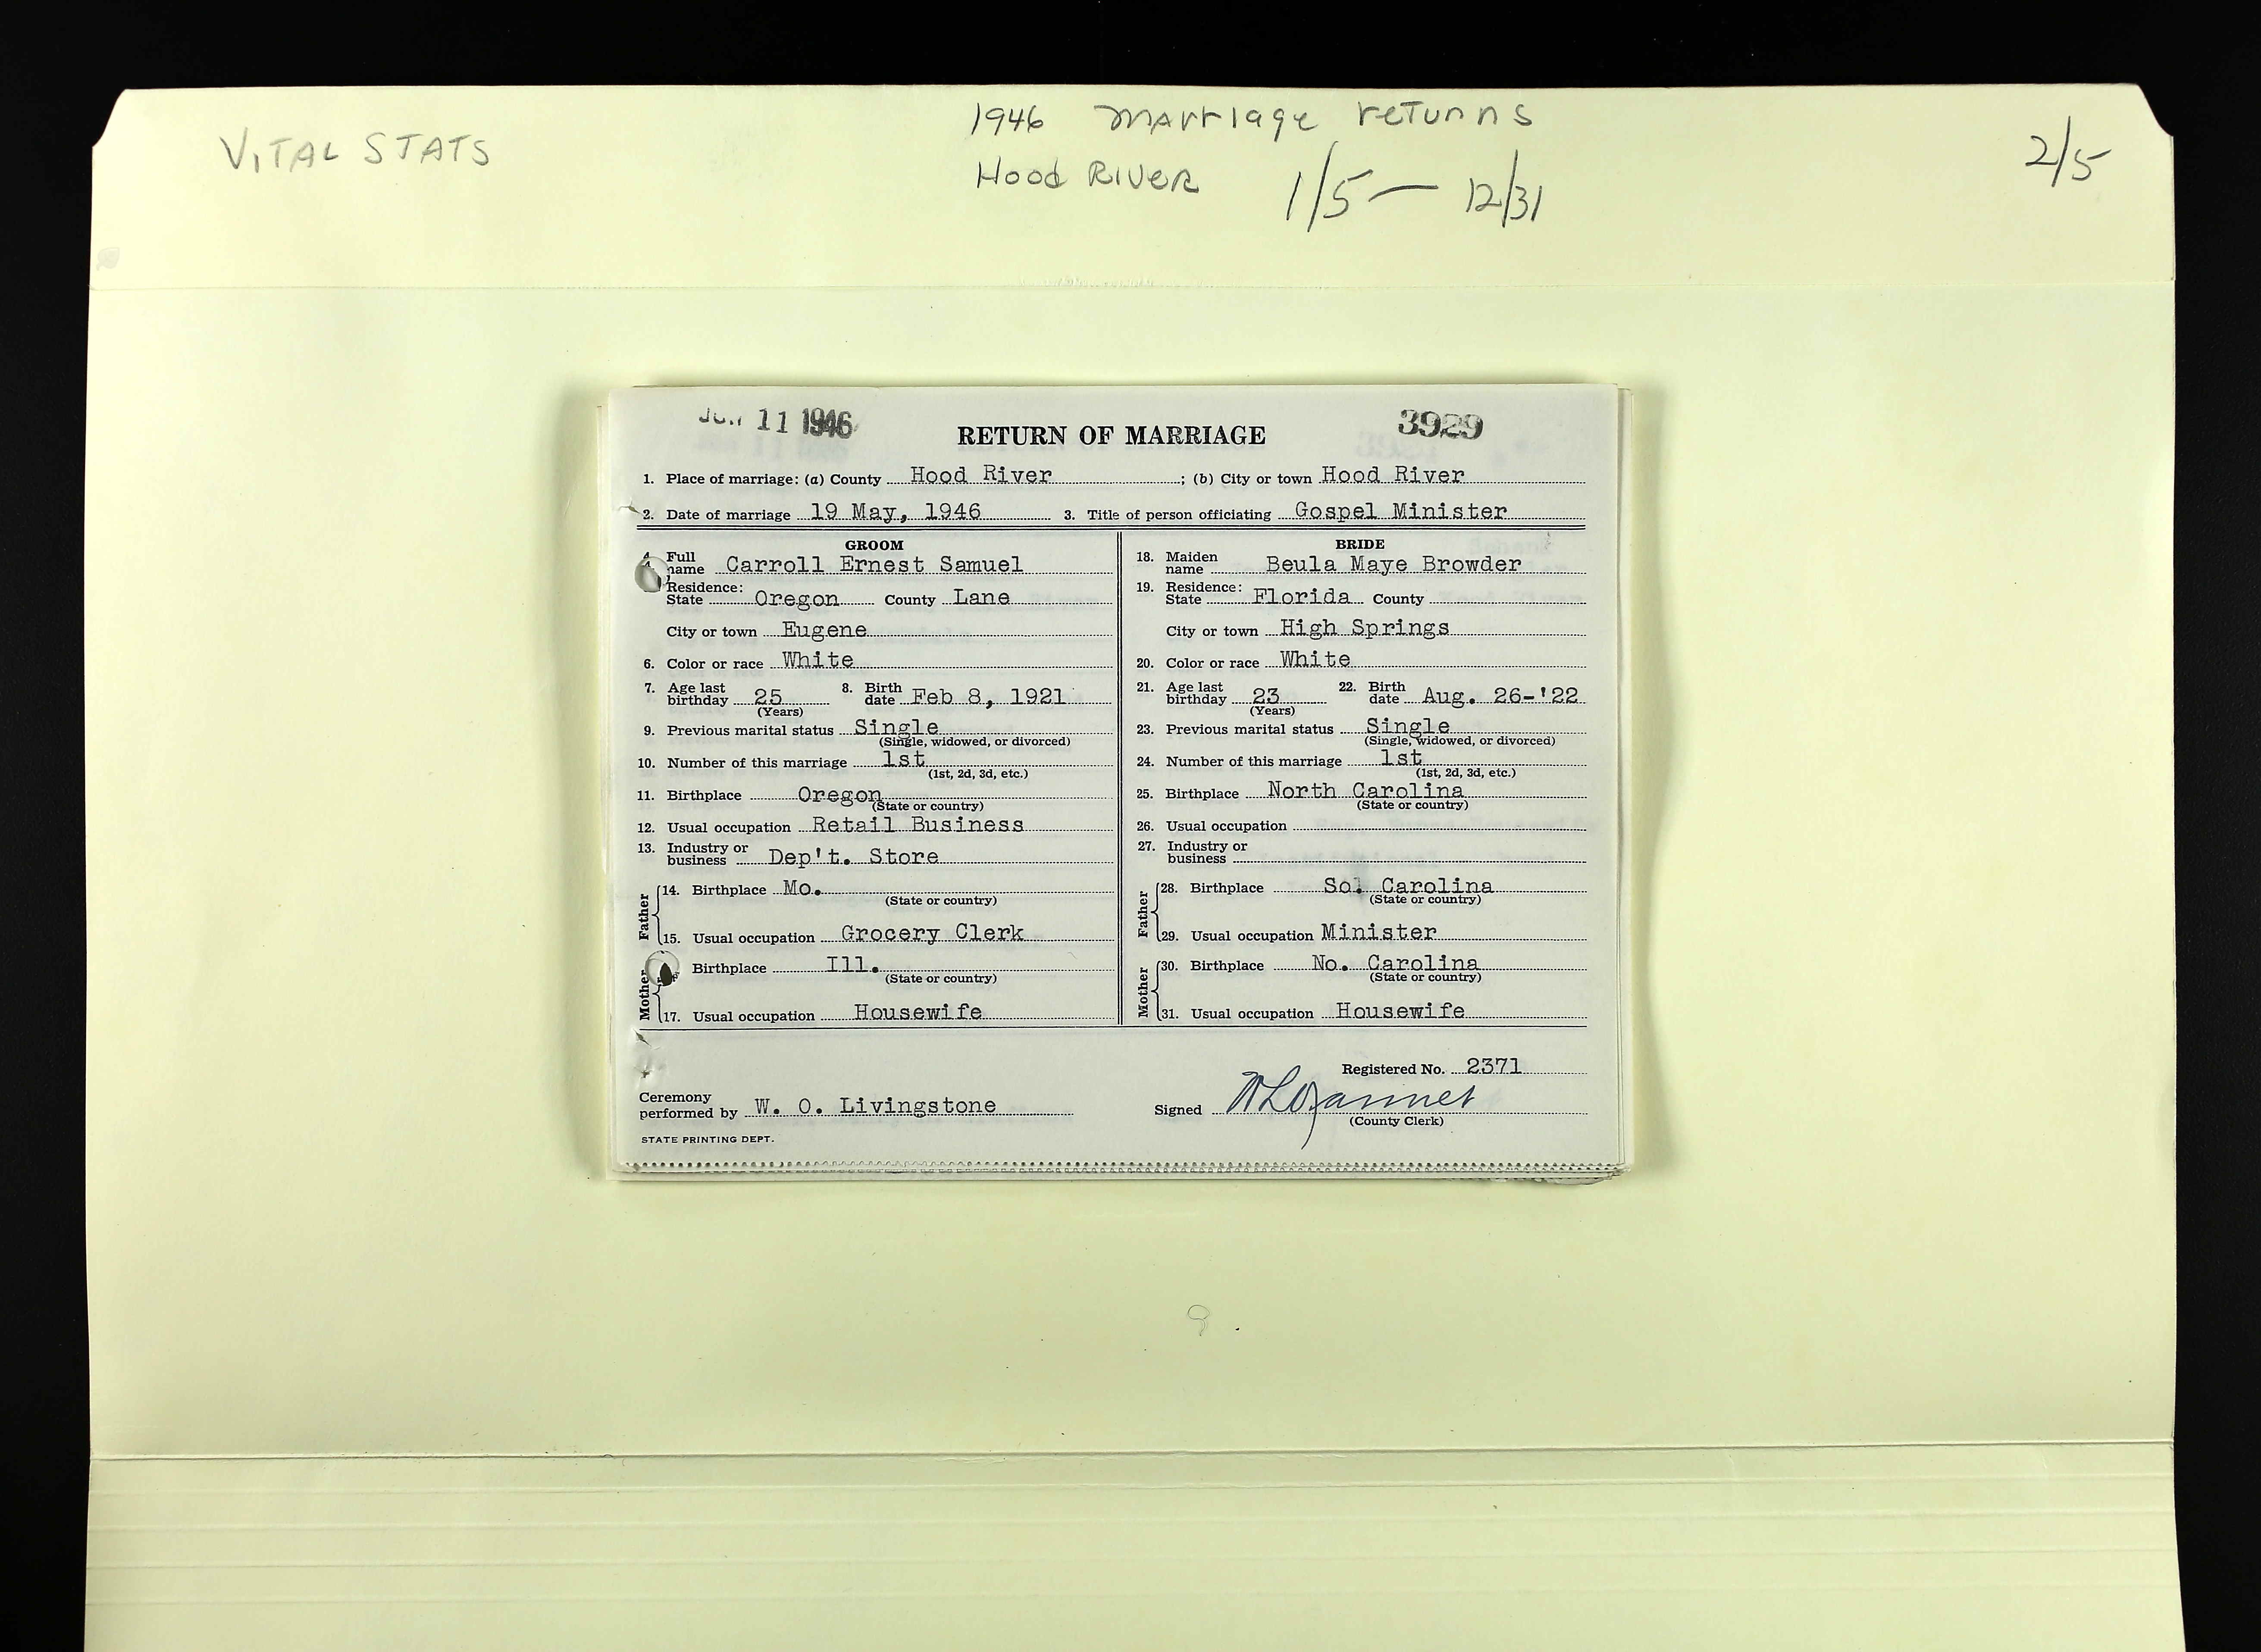 VITAL STATS
1946 marriage returns
Hood River 1/5 — 12/31
2/5
11 1946
3929
RETURN OF MARRIAGE
1. Place of marriage: (a) County Hood River ; (b) City or town Hood River
2. Date of marriage 19 May, 1946 3. Title of person officiating Gospel Minister
GROOM
4. Full name Carroll Ernest Samuel
Residence: State Oregon County Lane
City or town Eugene
6. Color or race White
7. Age last birthday 25 (Years) 8. Birth date Feb 8, 1921
9. Previous marital status Single
(Single, widowed, or divorced)
10. Number of this marriage 1st
(1st, 2d, 3d, etc.)
11. Birthplace Oregon
(State or country)
12. Usual occupation Retail Business
13. Industry or business Dep't. Store
Father
14. Birthplace Mo.
(State or country)
15. Usual occupation Grocery Clerk
Mother
Birthplace Ill.
(State or country)
17. Usual occupation Housewife
BRIDE
18. Maiden name Beula Maye Browder
19. Residence: State Florida County
City or town High Springs
20. Color or race White
21. Age last birthday 23 (Years) 22. Birth date Aug. 26-'22
23. Previous marital status Single
(Single, widowed, or divorced)
24. Number of this marriage 1st
(1st, 2d, 3d, etc.)
25. Birthplace North Carolina
(State or country)
26. Usual occupation
27. Industry or business
Father
28. Birthplace So. Carolina
(State or country)
29. Usual occupation Minister
Mother
30. Birthplace No. Carolina
(State or country)
31. Usual occupation Housewife
Registered No. 2371
Ceremony performed by W. O. Livingstone
Signed
(County Clerk)
STATE PRINTING DEPT.